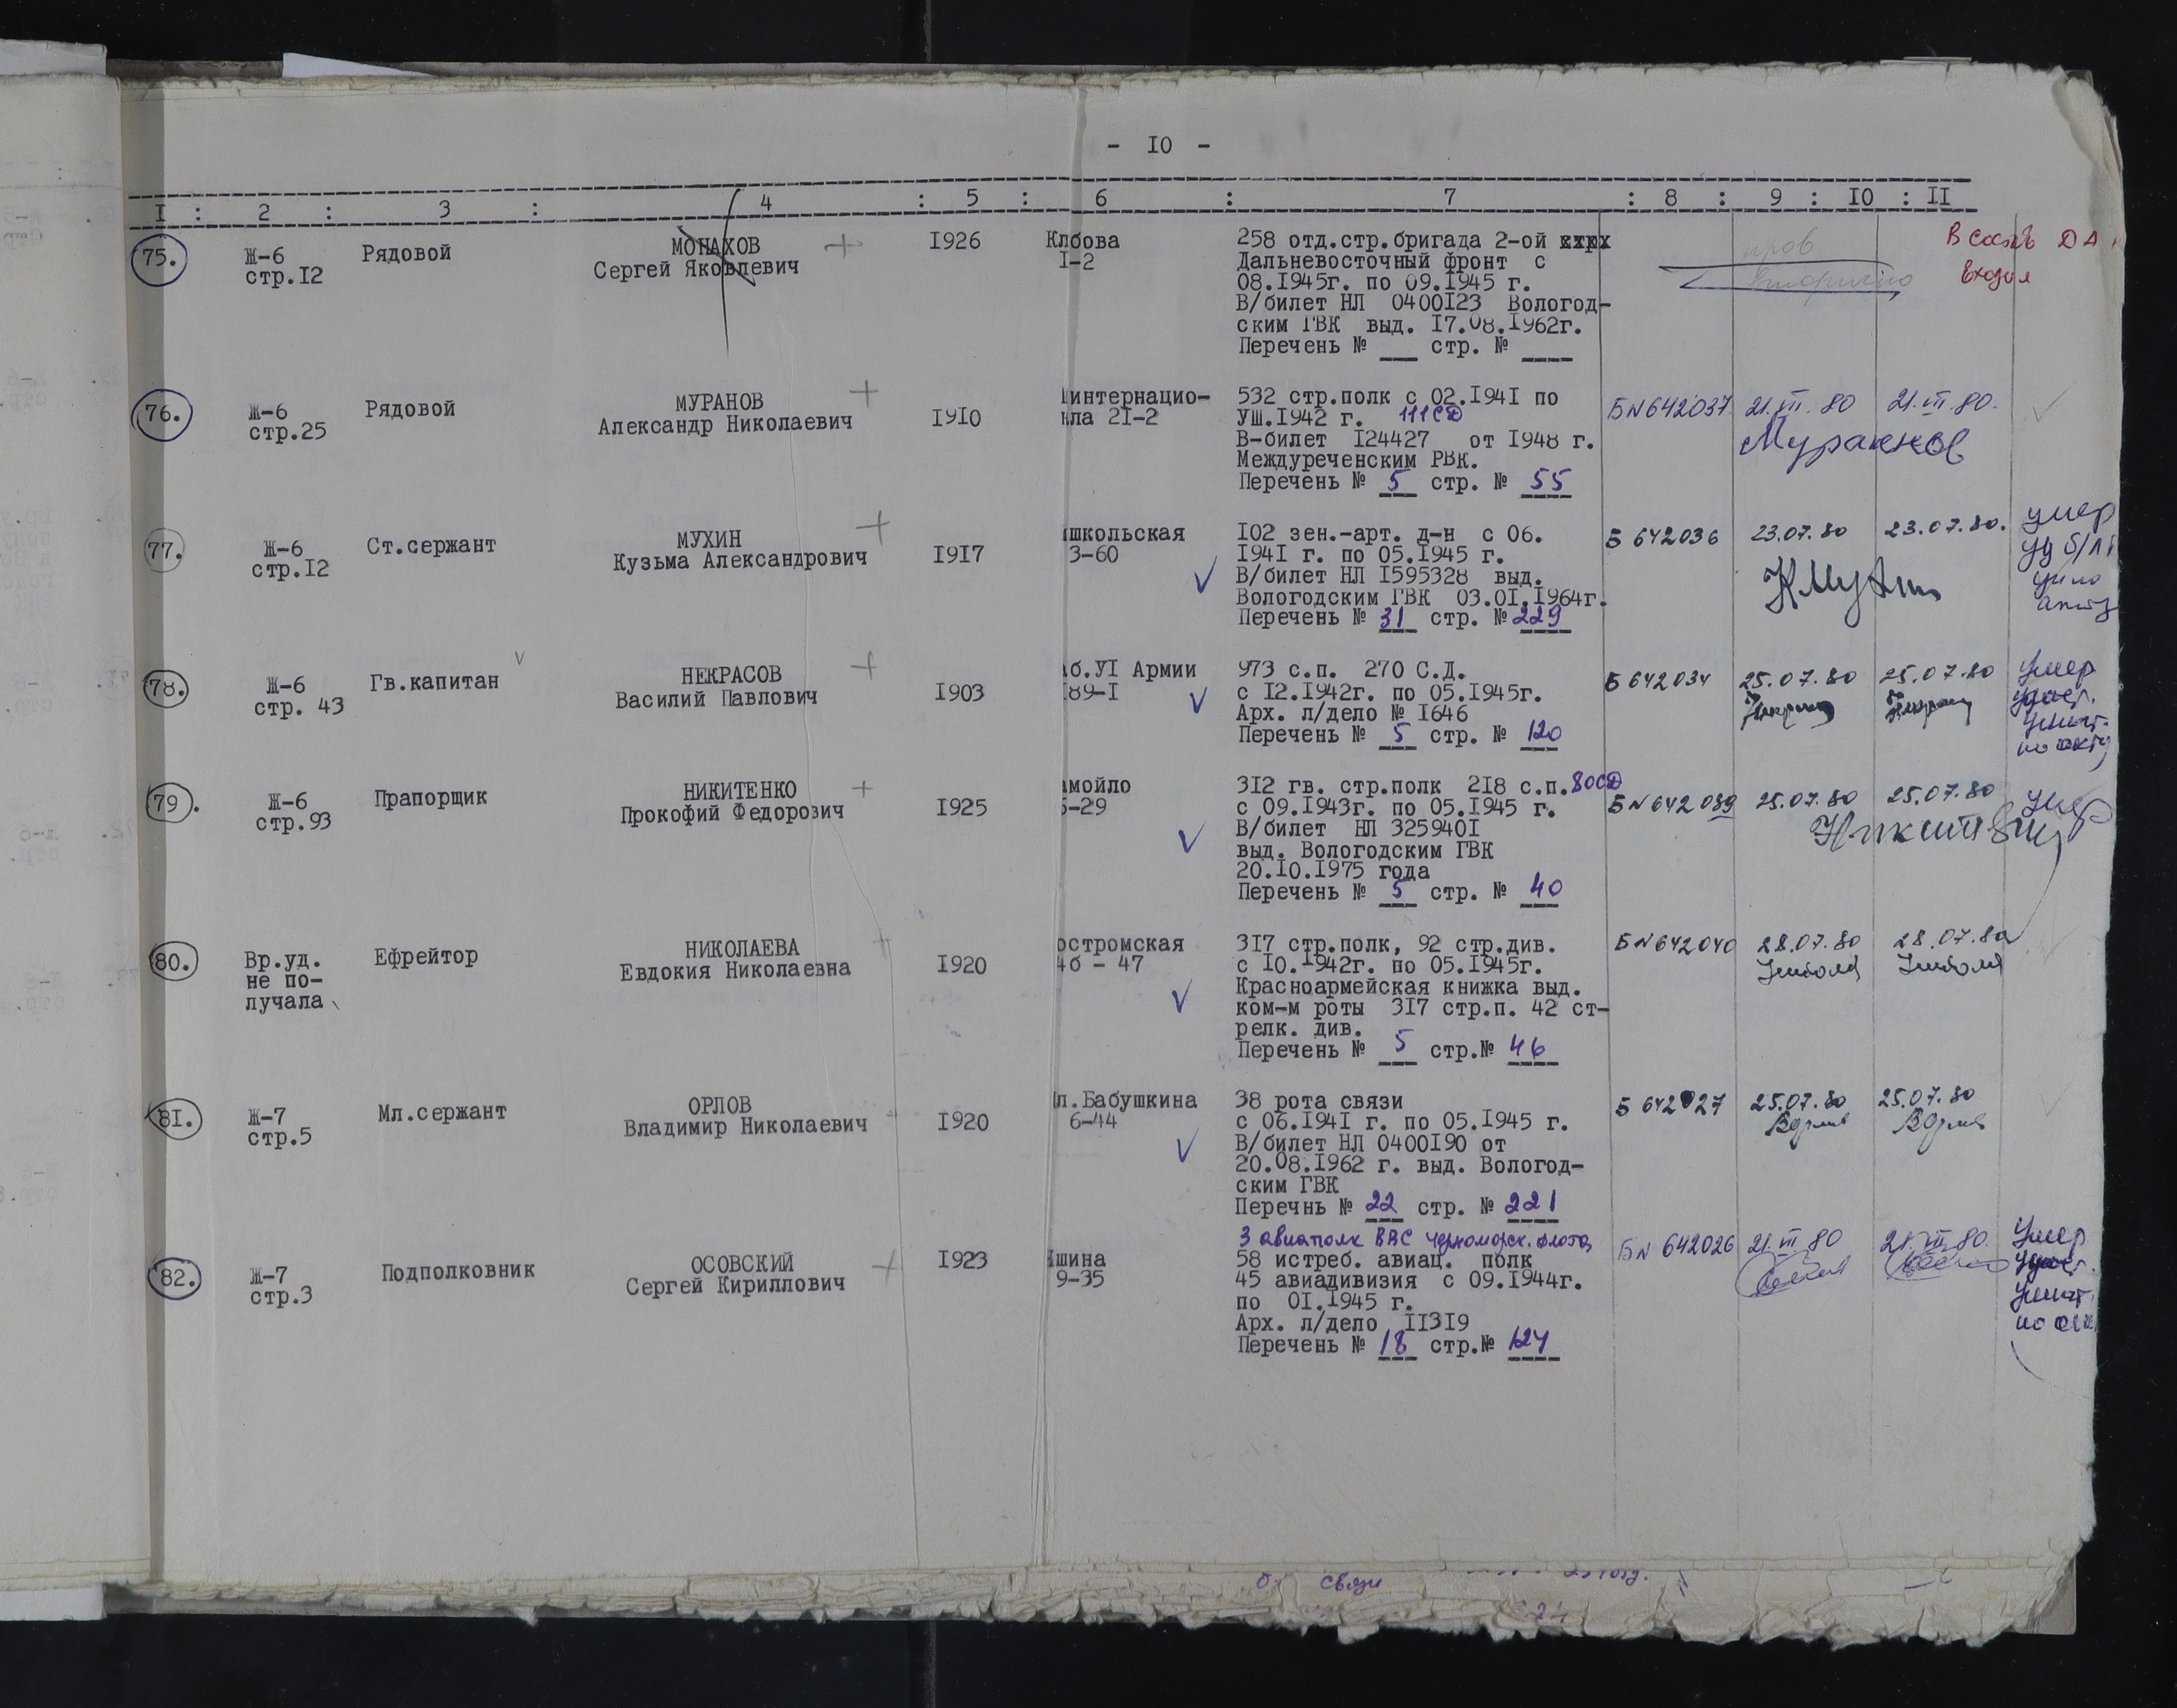 - IO -
I : 2 : 3 : 4 : 5 : 6 : 7 : 8 : 9 : IO : II
75. Ж-6 Рядовой МОНАХОВ + I926 Клбова 258 отд.стр.бригада 2-ой хтрх
стр.I2 Сергей Яковлевич I-2 Дальневосточный фронт с
08.I945г. по 09.I945 г.
В/билет НЛ 0400I23 Вологод-
ским ГВК выд. I7.08.I962г.
Перечень № ___ стр. № ____
В состав ДА
входил
76. Ж-6 Рядовой МУРАНОВ + I9I0 интернацио- 532 стр.полк с 02.I94I по
стр.25 Александр Николаевич ла 2I-2 УШ.I942 г. 111СД
В-билет I24427 от I948 г.
Междуреченским РВК.
Перечень № 5 стр. № 55
Б№642037 21.VII.80 21.VII.80.
77. Ж-6 Ст.сержант МУХИН + I9I7 школьская I02 зен.-арт. д-н с 06.
стр.I2 Кузьма Александрович 3-60 I94I г. по 05.I945 г.
В/билет НЛ I595328 выд.
Вологодским ГВК 03.0I.I964г.
Перечень № 31 стр. № 229
Б 642036 23.07.80 23.07.80. умер
КМухин
78. Ж-6 Гв.капитан НЕКРАСОВ + I903 б.УI Армии 973 с.п. 270 С.Д.
стр. 43 Василий Павлович 89-I с I2.I942г. по 05.I945г.
Арх. л/дело № I646
Перечень № 5 стр. № 120
Б 642034 25.07.80 25.07.80 Умер
удост.
уничт.
по акту
79. Ж-6 Прапорщик НИКИТЕНКО + I925 мойло 3I2 гв. стр.полк 2I8 с.п. 80СД
стр.93 Прокофий Федорович 5-29 с 09.I943г. по 05.I945 г.
В/билет НЛ 325940I
выд. Вологодским ГВК
20.I0.I975 года
Перечень № 5 стр. № 40
Б№642039 25.07.80 25.07.80 умер
80. Вр.уд. Ефрейтор НИКОЛАЕВА + I920 остромская 3I7 стр.полк, 92 стр.див.
не по- Евдокия Николаевна 4б - 47 с I0.I942г. по 05.I945г.
лучала Красноармейская книжка выд.
ком-м роты 3I7 стр.п. 42 ст-
релк. див.
Перечень № 5 стр.№ 46
Б№642040 28.07.80 28.07.80
81. Ж-7 Мл.сержант ОРЛОВ I920 л.Бабушкина 38 рота связи
стр.5 Владимир Николаевич 6-44 с 06.I94I г. по 05.I945 г.
В/билет НЛ 0400I90 от
20.08.I962 г. выд. Вологод-
ским ГВК
Перечнь № 22 стр. № 221
Б 642027 25.07.80 25.07.80
3 авиаполк ВВС Черноморск. флота
82. Ж-7 Подполковник ОСОВСКИЙ + I923 шина 58 истреб. авиац. полк
стр.3 Сергей Кириллович 9-35 45 авиадивизия с 09.I944г.
по 0I.I945 г.
Арх. л/дело II3I9
Перечень № 18 стр.№ 124
Б№ 642026 21.VII 80 21.VII.80. Умер
удост.
уничт.
по
связи